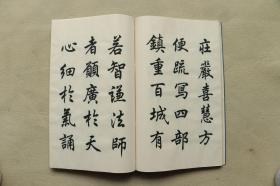 莊嚴喜慧方
便疏寫四部
鎮重百城有
若智謙法師
者願廣於天
心細於氣誦